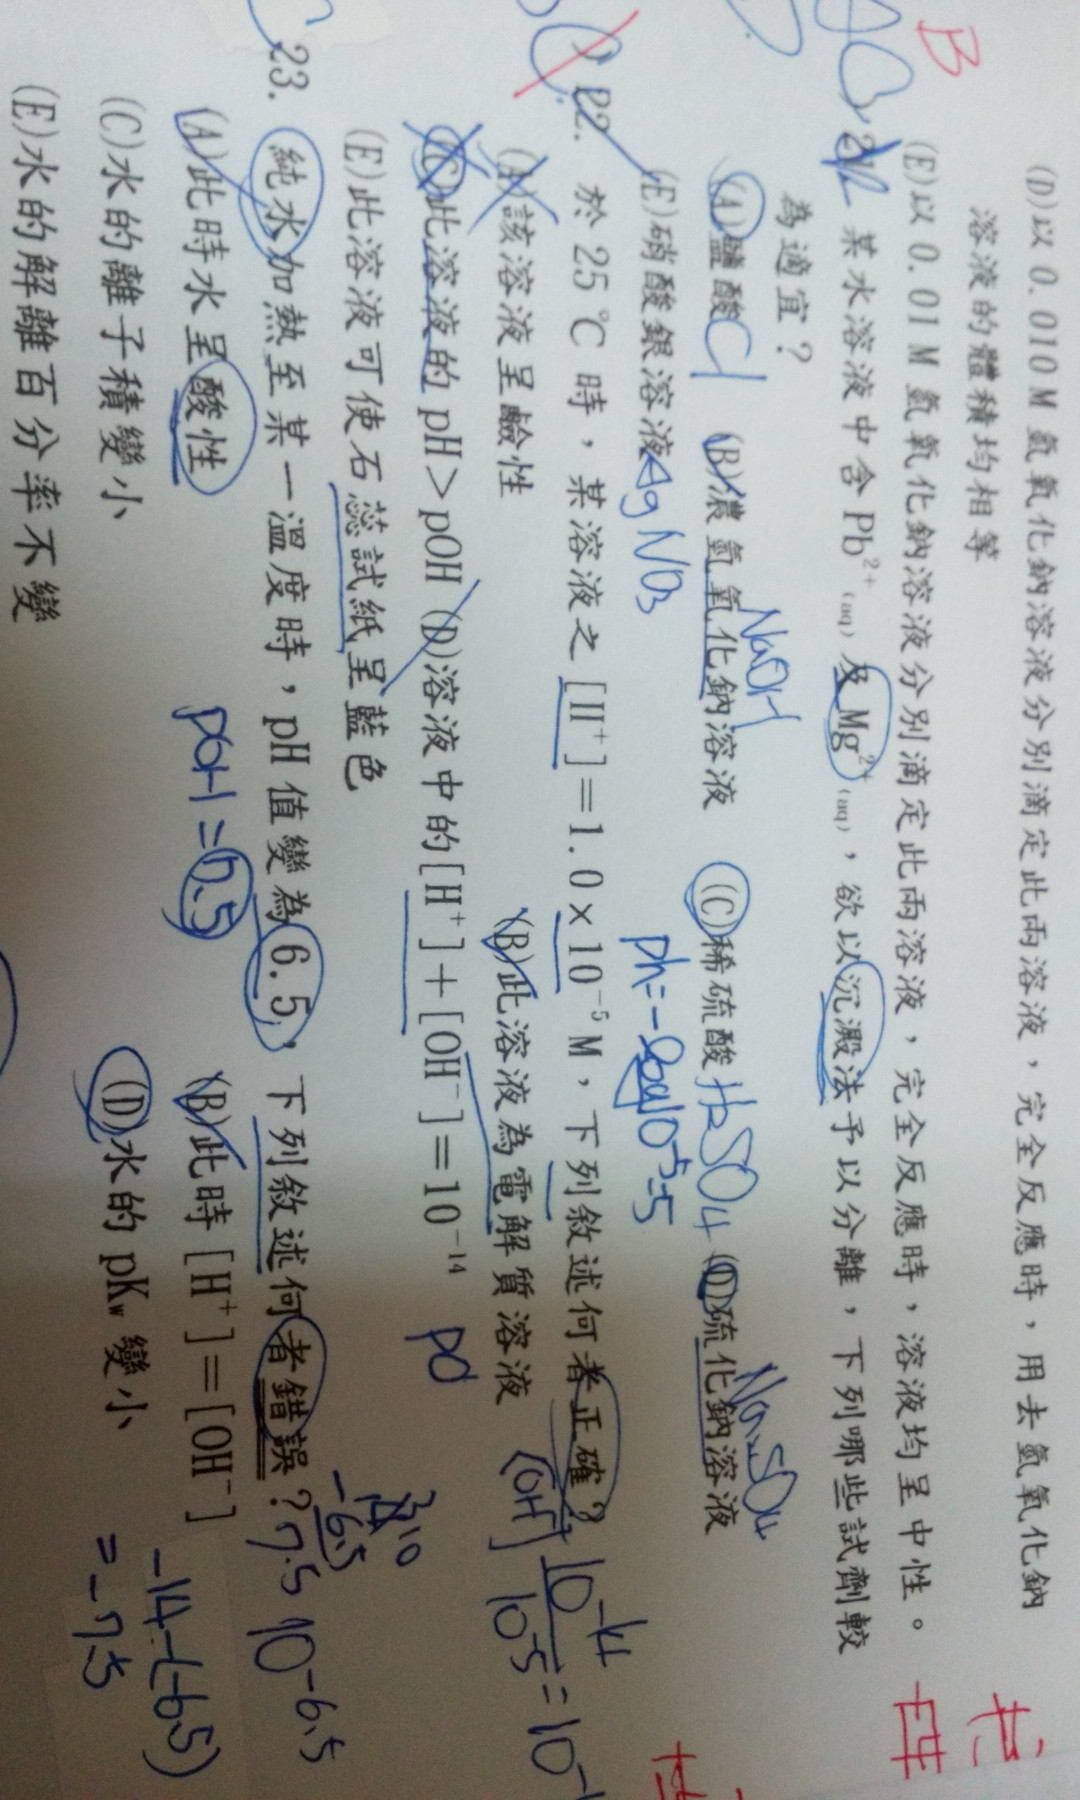 (D)以 0.010 M 氫氧化鈉溶液分別滴定此兩溶液，完全反應時，用去氫氧化鈉
溶液的體積均相等
(E)以 0.01 M 氫氧化鈉溶液分別滴定此兩溶液，完全反應時，溶液均呈中性。
B
21. 某水溶液中含 Pb²⁺(aq) 及 Mg²⁺(aq)，欲以沉澱法予以分離，下列哪些試劑較
為適宜？
(A)鹽酸 Cl (B)濃氫氧化鈉溶液 NaOH (C)稀硫酸 H₂SO₄ (D)硫化鈉溶液 Na₂SO₄
(E)硝酸銀溶液 AgNO₃
pH=-log10⁻⁵=5
22. 於 25 ℃ 時，某溶液之 [H⁺]=1.0×10⁻⁵ M，下列敘述何者正確？
(A)該溶液呈鹼性 (B)此溶液為電解質溶液
[OH⁻]
(C)此溶液的 pH＞pOH (D)溶液中的[H⁺]+[OH⁻]=10⁻¹⁴
(E)此溶液可使石蕊試紙呈藍色
23. 純水加熱至某一溫度時，pH 值變為 6.5，下列敘述何者錯誤？
-6.5
7.5
10-6.5
pOH=7.5
(A)此時水呈酸性 (B)此時 [H⁺]=[OH⁻]
-14-(-6.5)
=-7.5
(C)水的離子積變小 (D)水的 pKw 變小
(E)水的解離百分率不變